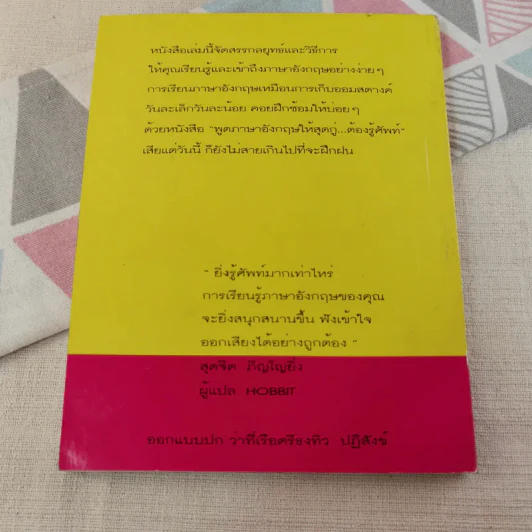 หนังสือเล่มนี้จัดสรรกลยุทธ์และวิธีการ
ให้คุณเรียนรู้และเข้าถึงภาษาอังกฤษอย่างง่าย ๆ
การเรียนภาษาอังกฤษเหมือนการเก็บออมสตางค์
วันละเล็กวันละน้อย คอยฝึกซ้อมให้บ่อย ๆ
ด้วยหนังสือ "พูดภาษาอังกฤษให้สุดกู่...ต้องรู้ศัพท์"
เสียแต่วันนี้ ก็ยังไม่สายเกินไปที่จะฝึกฝน
" ยิ่งรู้ศัพท์มากเท่าไหร่
การเรียนรู้ภาษาอังกฤษของคุณ
จะยิ่งสนุกสนานขึ้น ฟังเข้าใจ
ออกเสียงได้อย่างถูกต้อง "
สุดจิต ภิญโญยิ่ง
ผู้แปล HOBBIT
ออกแบบปก ว่าที่เรือตรีธงทิว ปฏิสังข์